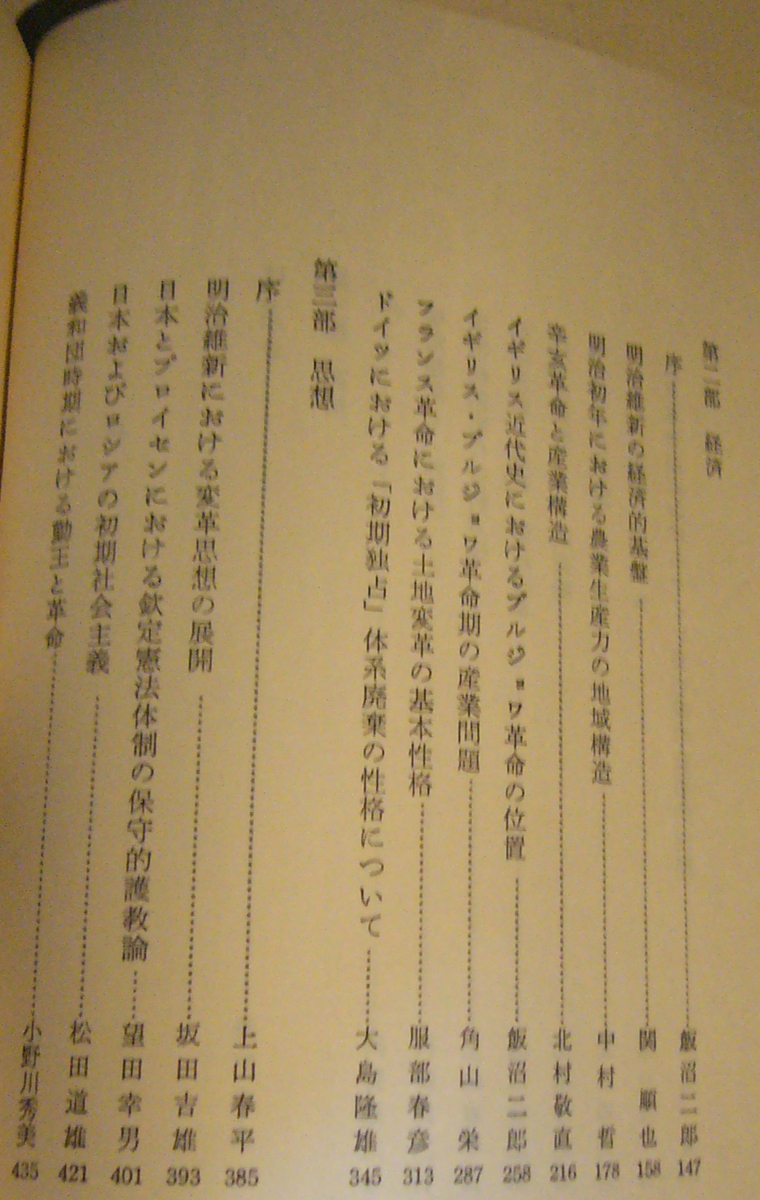 第二部　経済
序……飯沼二郎 147
明治維新の経済的基盤……関　順也 158
明治初年における農業生産力の地域構造……中村　哲 178
辛亥革命と産業構造……北村敬直 216
イギリス近代史におけるブルジョワ革命の位置……飯沼二郎 258
イギリス・ブルジョワ革命期の産業問題……角山　栄 287
フランス革命における土地変革の基本性格……服部春彦 313
ドイツにおける「初期独占」体系廃棄の性格について……大島隆雄 345
第三部　思想
序……上山春平 385
明治維新における変革思想の展開……坂田吉雄 393
日本とプロイセンにおける欽定憲法体制の保守的護教論……望田幸男 401
日本およびロシアの初期社会主義……松田道雄 421
義和団時期における勤王と革命……小野川秀美 435